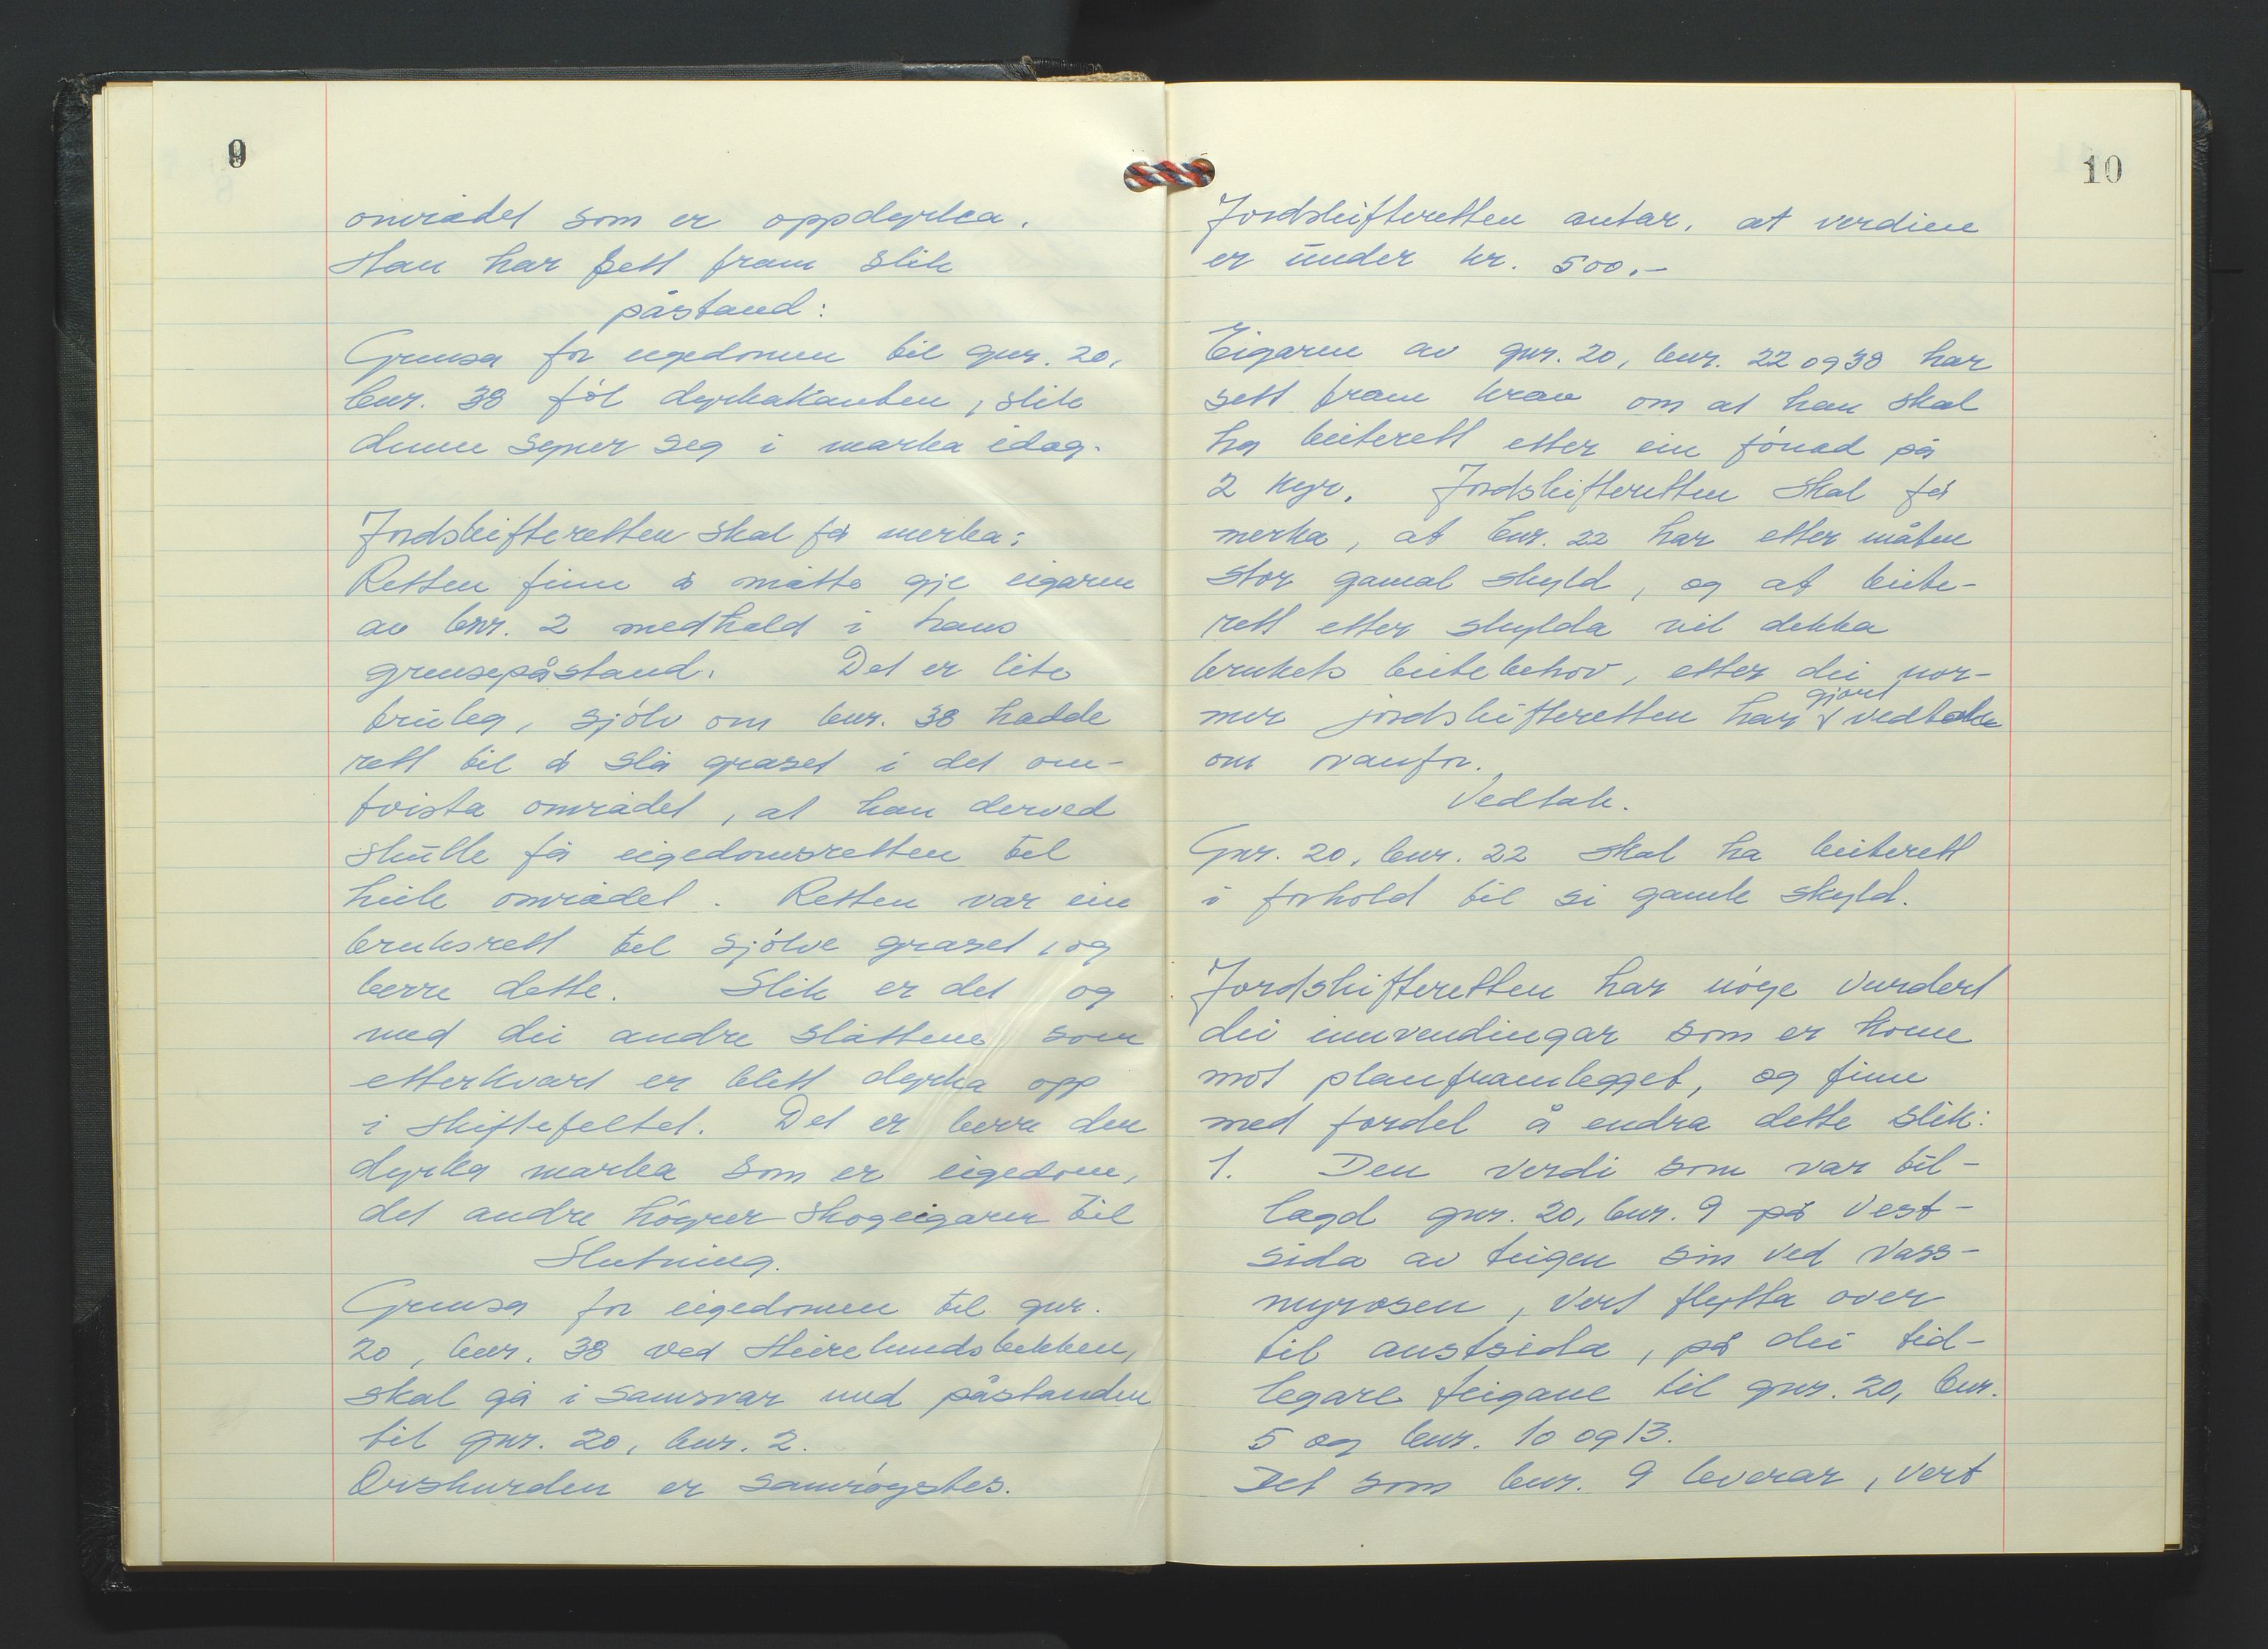 9
området som er oppdyrka.
Han har sett fram slik
påstand:
Grensa for eigedomen til gnr. 20,
bnr. 38 föl dyrkakanten, slik
denne syner seg i marka idag.
Jordskifteretten skal få merka:
Retten finn å måtte gje eigaren
av bnr. 2 medhald i hans
grensepåstand. Det er lite
truleg, sjölv om bnr. 38 hadde
rett til å slå graset i det om-
tvista området, at han derved
skulle få eigedomsretten til
heile området. Retten var ein
bruksrett til sjölve graset, og
berre dette. Slik er det og
med dei andre slåttene som
etterkvart er blitt dyrka opp
i skiftefeltet. Det er berre den
dyrka marka som er eigedom,
det andre högrer skogeigaren til
Slutning.
Grensa for eigedomen til gnr.
20, bnr. 38 ved Heirelundsbekken,
skal gå i samsvar med påstanden
til gnr. 20, bnr. 2.
Orskurden er samröystes.
10
Jordskifteretten antar, at verdien
er under kr. 500.-
Eigaren av gnr. 20, bnr. 22 og 38 har
sett fram krav om at han skal
ha beiterett etter ein fönad på
2 kyr. Jordskifteretten skal få
merka, at bnr. 22 har etter måten
stor gamal skyld, og at beite-
rett etter skylda vil dekka
brukets beitebehov, etter dei nor-
mer jordskifteretten har gjort vedtak
om ovanfor.
Vedtak.
Gnr. 20, bnr. 22 skal ha beiterett
i forhold til si gamle skyld.
Jordskifteretten har nöye vurdert
dei innvendingar som er kome
mot planframlegget, og finn
med fordel å endra dette slik:
1. Den verdi som var til-
lagd gnr. 20, bnr. 9 på vest-
sida av teigen sin ved Vass-
myrosen, vert flytta over
til austsida, på dei tid-
legare teigane til gnr. 20, bnr.
5 og bnr. 10 og 13.
Det som bnr. 9 leverar, vert